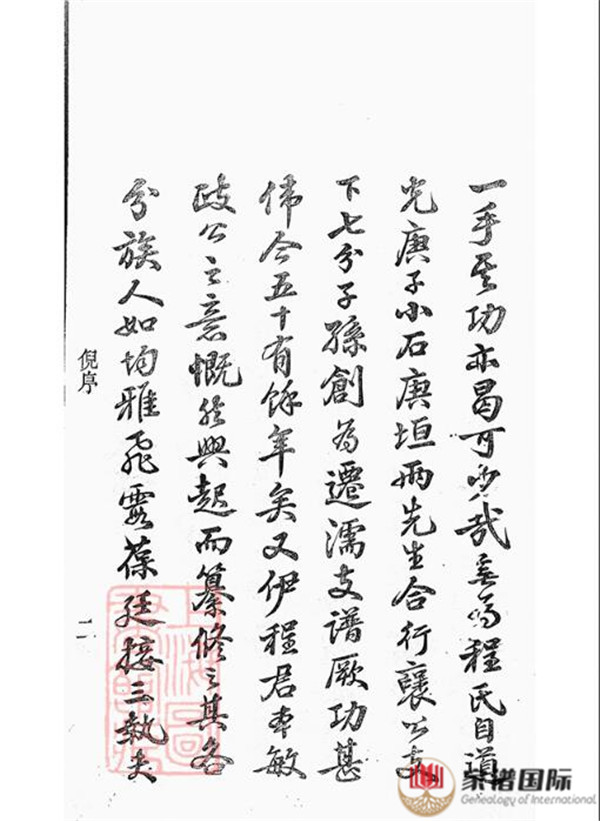 一手其功亦曷可少哉無為程氏自道
光庚子小石庚垣兩先生合行襄公支
下七分子孫創為遷濡支譜厥功甚
偉今五十有餘年矣又伊程君本敏
政公之意慨然興起而纂修之其各
分族人如均雅飛霞葆廷接三執夫
倪序
二
上海圖書館藏
家谱国际
Genealogy of International